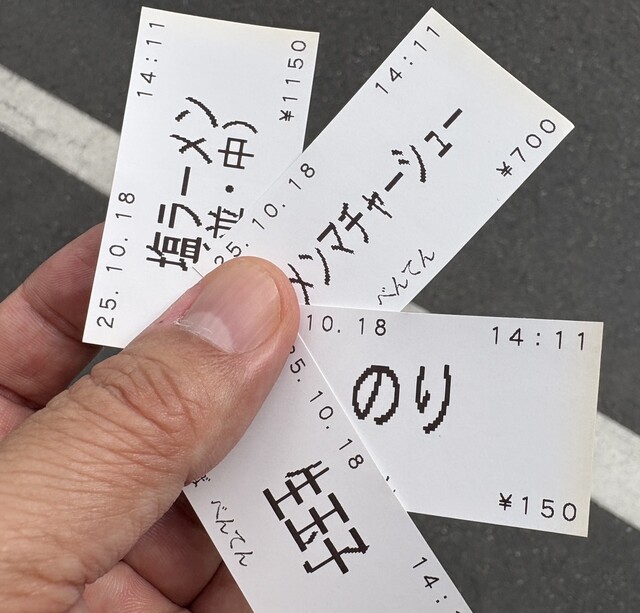 25.10.18 14:11
塩ラーメン
並・中)
¥1150
25.10.18 14:11
メンマチャーシュー
¥700
べんてん
10.18 14:11
のり
¥150
25.10.18 14:
生玉子
べんてん